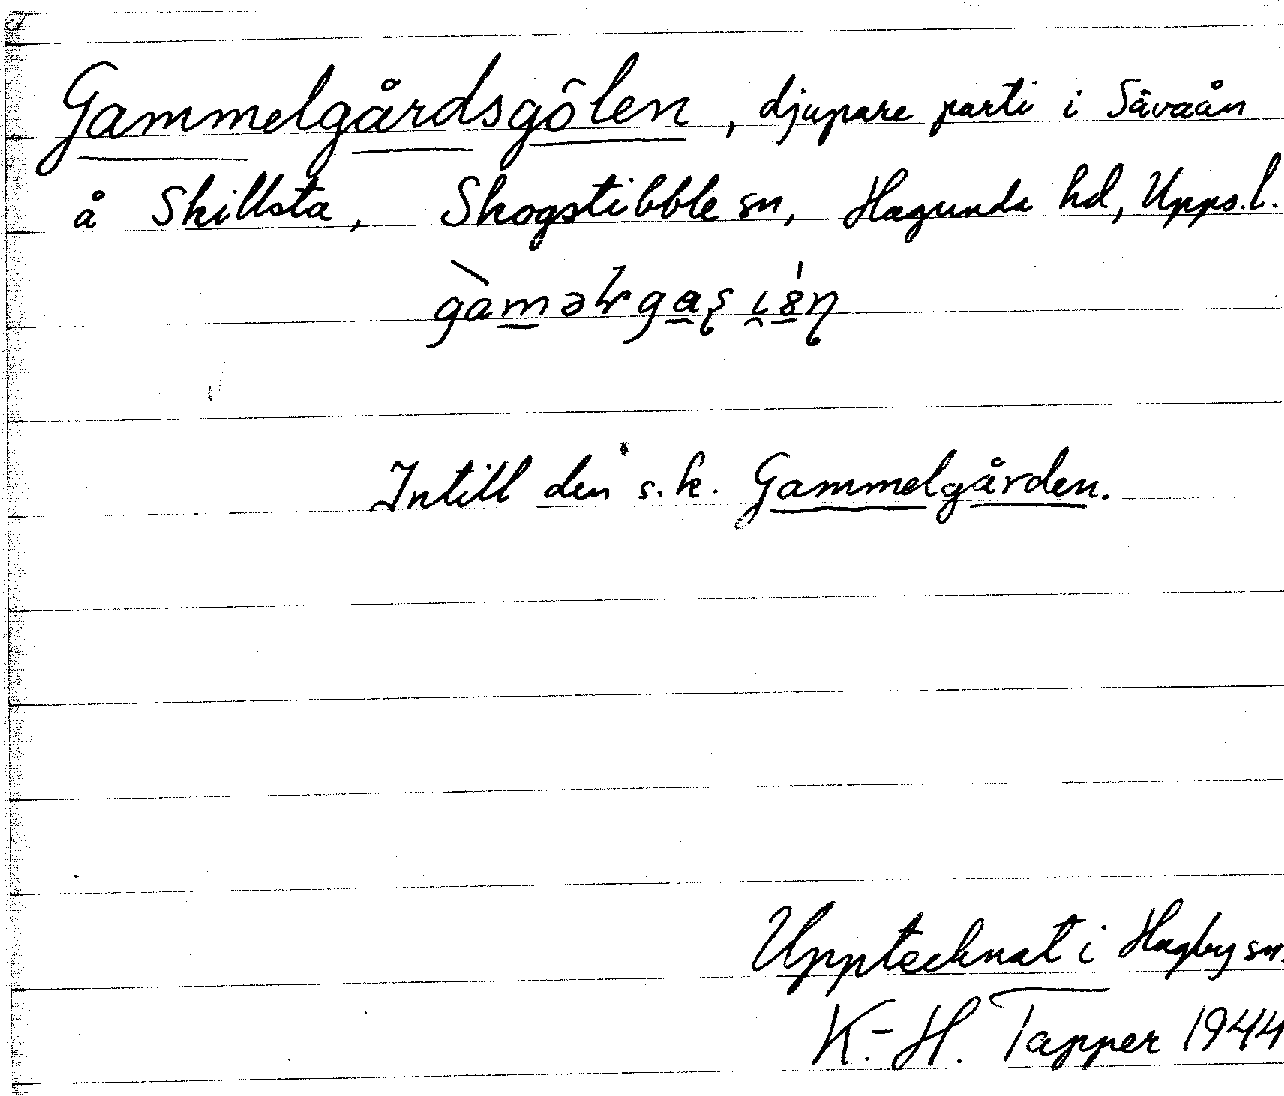 Gammelgårdsgölen, djupare parti i Sävaån
å Skillsta, Skogstibble sn, Hagunda hd, Upps. l.
Intill den s. k. Gammelgården.
Upptecknat i Hagby sn.
K.-H. Tapper 1944